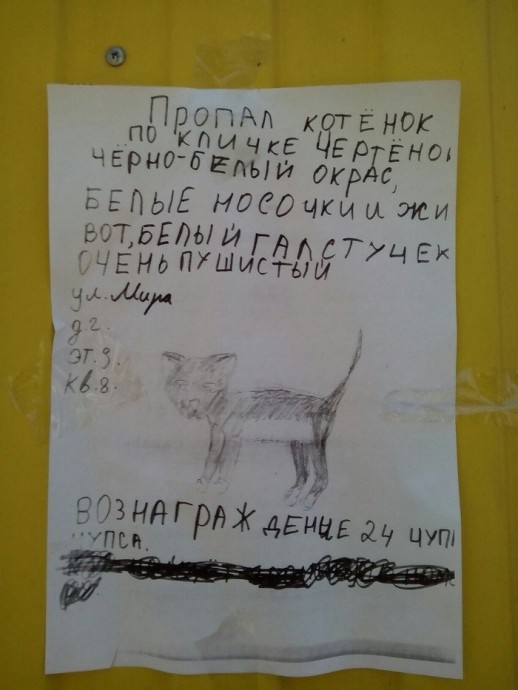 ПРОПАЛ КОТЁНОК
ПО КЛИЧКЕ ЧЕРТЁНО
ЧЁРНО-БЕЛЫЙ ОКРАС,
БЕЛЫЕ НОСОЧКИ И ЖИ
ВОТ, БЕЛЫЙ ГАЛСТУЧЕК
ОЧЕНЬ ПУШИСТЫЙ
ул. Мира
д.2.
эт.3.
кв.8.
ВОЗНАГРАЖДЕНИЕ 24 ЧУПА
ЧУПСА.